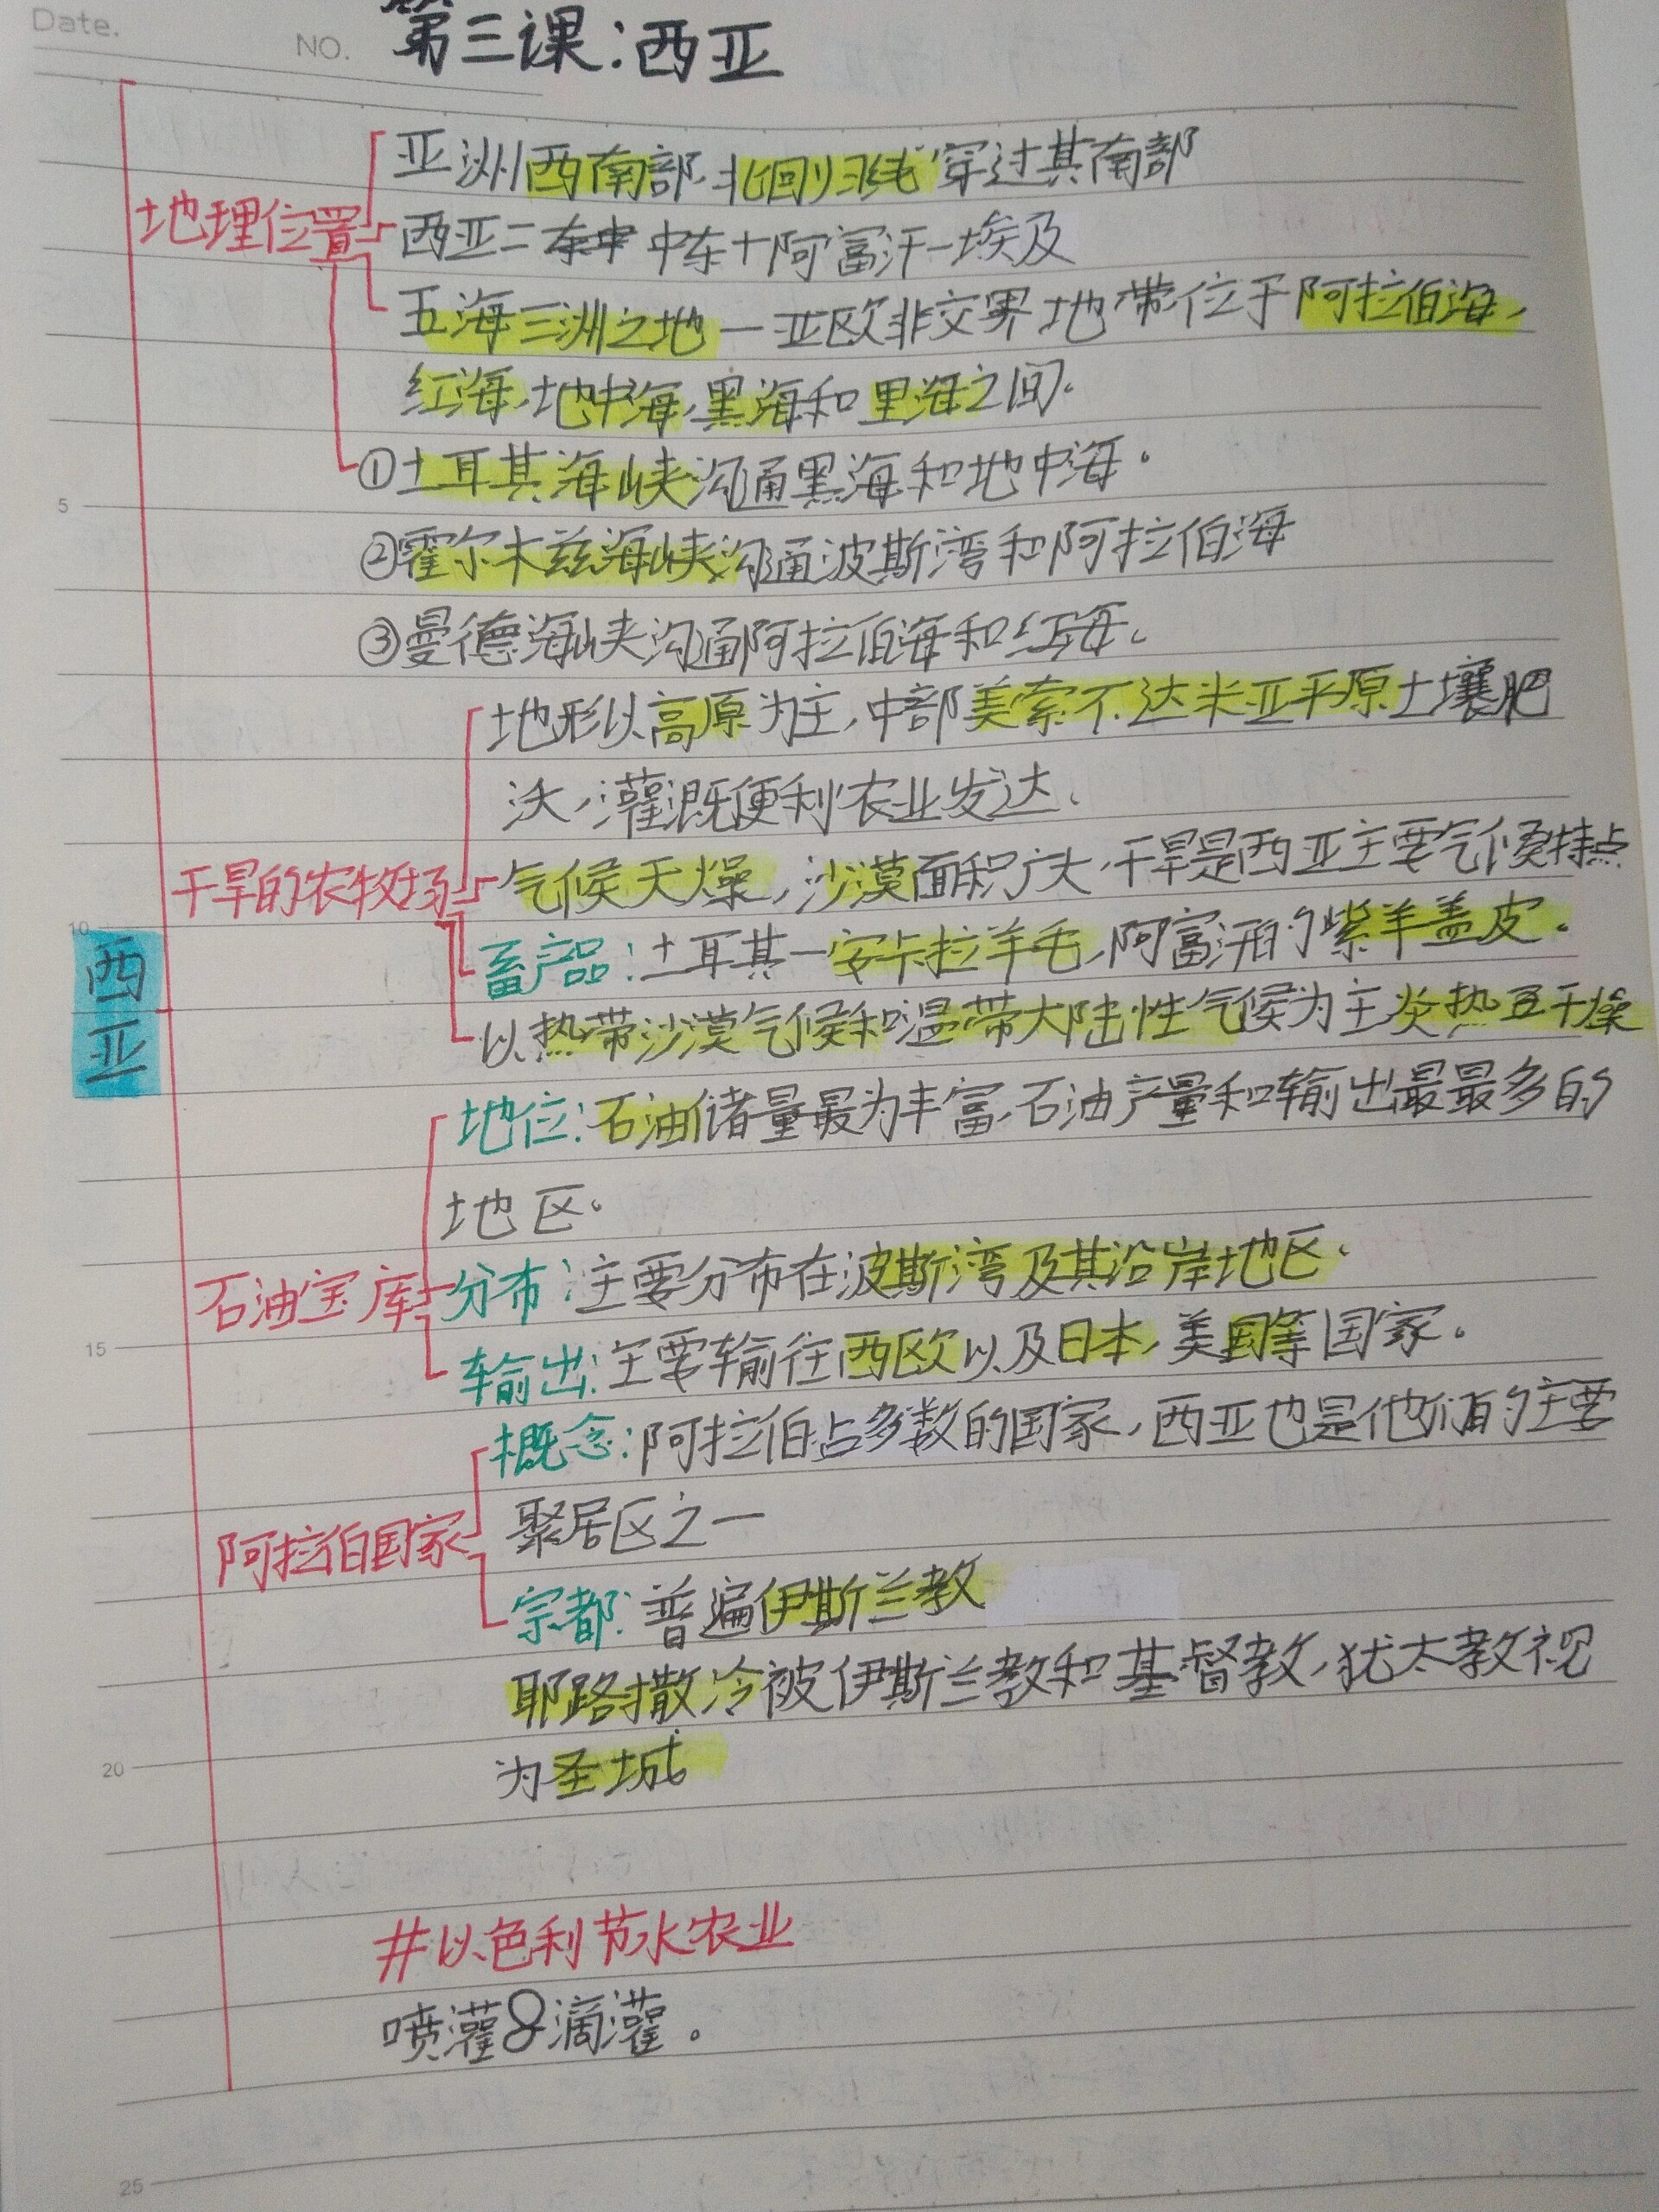 Date.
NO.
第三课:西亚
地理位置
亚洲西南部,北回归线穿过其南部
西亚=中东+阿富汗-埃及
五海三洲之地—亚欧非交界地带位于阿拉伯海,
红海,地中海,黑海和里海之间.
①土耳其海峡沟通黑海和地中海.
5
②霍尔木兹海峡沟通波斯湾和阿拉伯海
③曼德海峡沟通阿拉伯海和红海.
干旱的农牧场
地形以高原为主,中部美索不达米亚平原土壤肥
沃,灌溉便利农业发达.
气候干燥,沙漠面积广大,干旱是西亚主要气候特点
10
畜产品:土耳其—安卡拉羊毛,阿富汗的紫羊盖皮.
以热带沙漠气候和温带大陆性气候为主炎热且干燥
西亚
石油宝库
地位:石油储量最为丰富,石油产量和输出最最多的
地区.
分布:主要分布在波斯湾及其沿岸地区.
15
输出:主要输往西欧以及日本,美国等国家.
阿拉伯国家
概念:阿拉伯占多数的国家,西亚也是他们的主要
聚居区之一
宗都:普遍伊斯兰教
耶路撒冷被伊斯兰教和基督教,犹太教视
为圣城
20
#以色列节水农业
喷灌&滴灌。
25